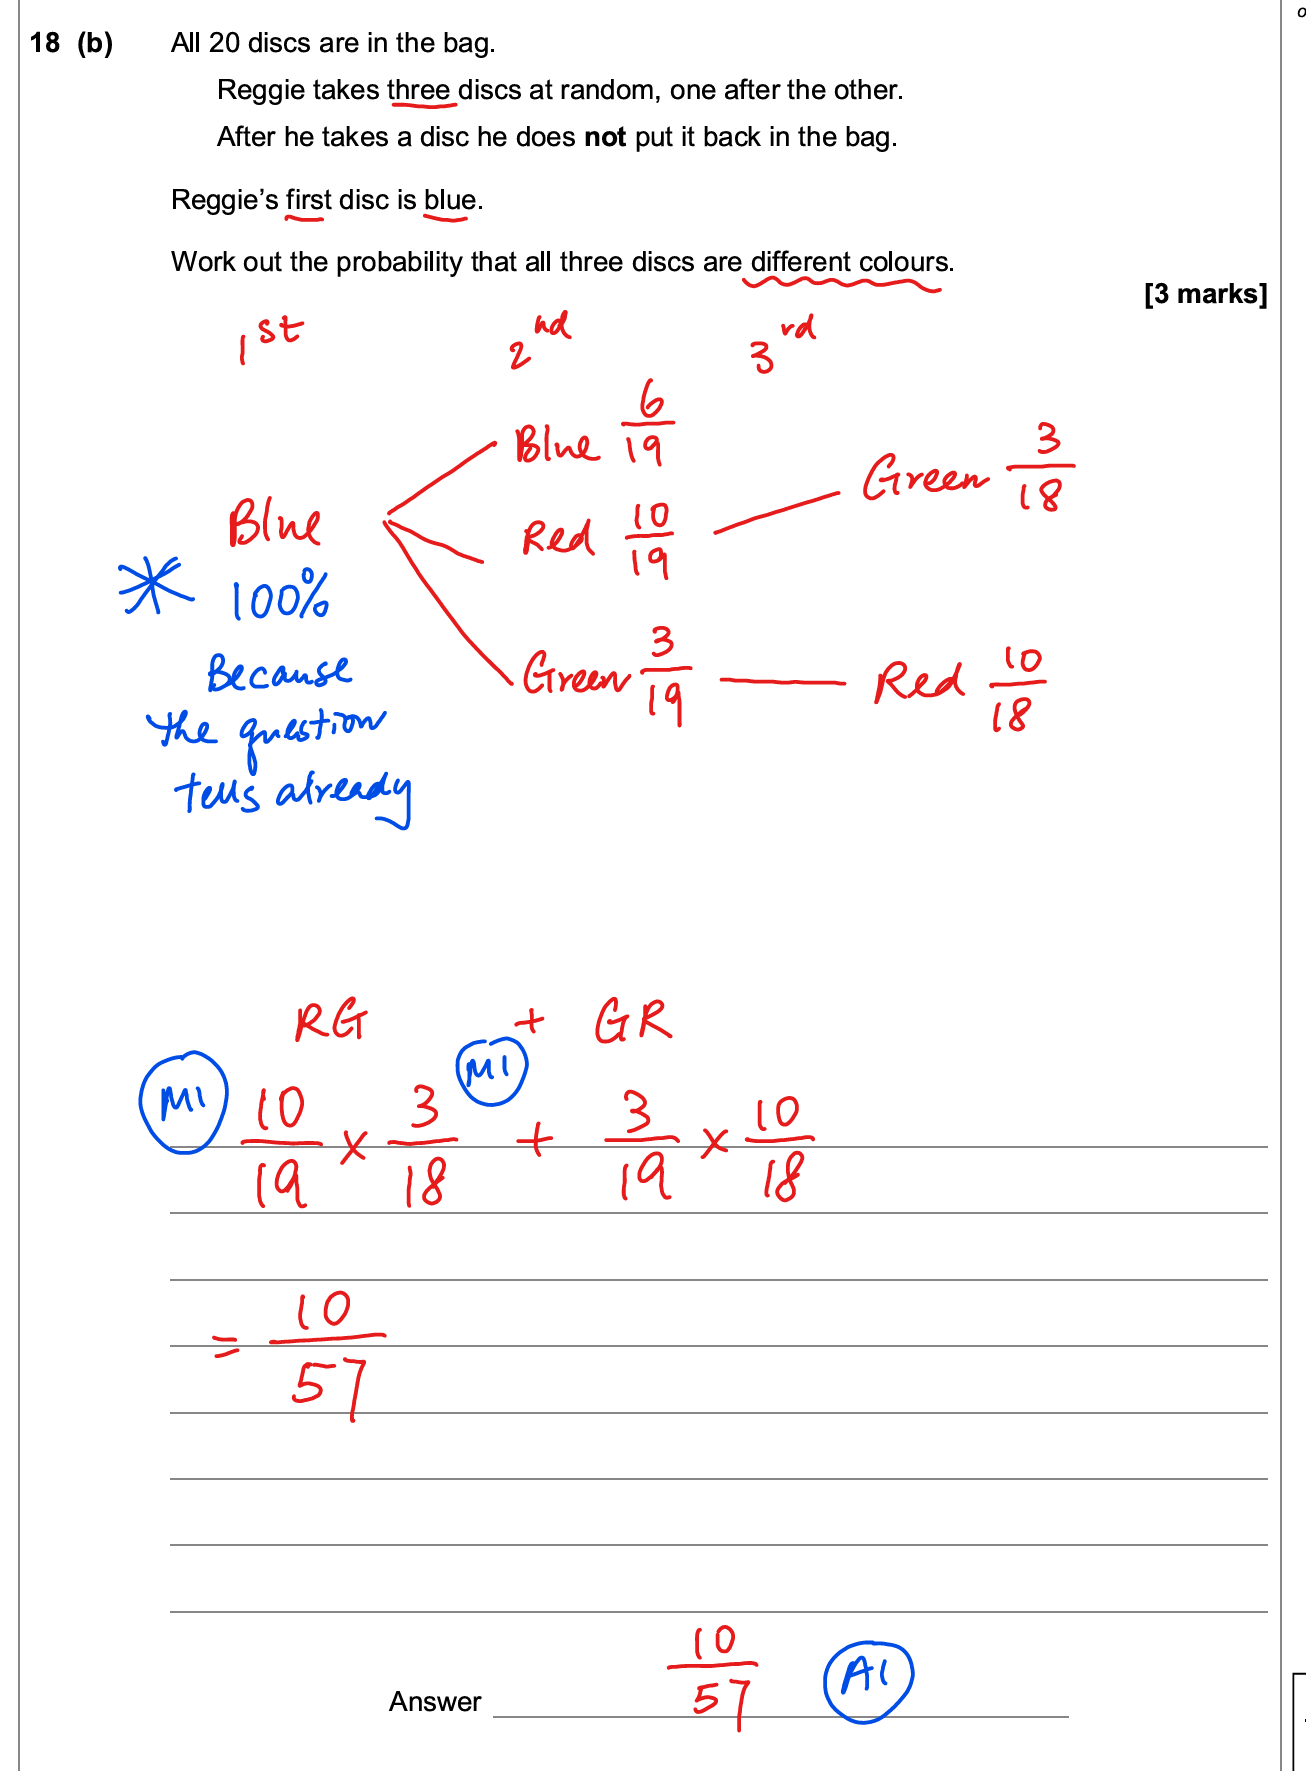 18 (b) All 20 discs are in the bag.
Reggie takes three discs at random, one after the other.
After he takes a disc he does not put it back in the bag.
Reggie's first disc is blue.
Work out the probability that all three discs are different colours.
[3 marks]
1st 2nd 3rd
Blue 6/19
Green 3/18
Blue
Red 10/19
100%
Because
Green 3/19
Red 10/18
the question
tells already
RG + GR
M1 10/19 × 3/18 M1 + 3/19 × 10/18
= 10/57
Answer 10/57 A1